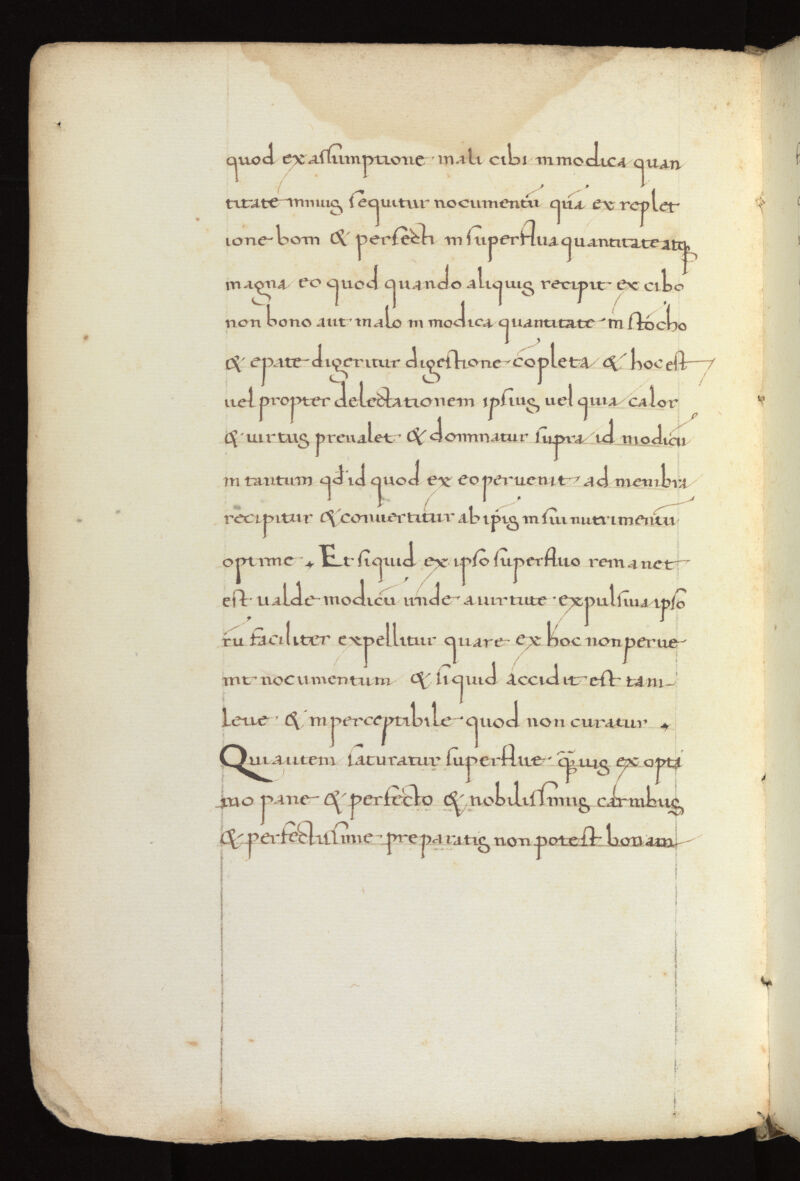 quod ex assumptione mali cibi in modica quan
titate minus sequitur nocumentū quā ex replet
ione boni & perfecti in superflua quantitate atqꝫ
magna eo quod quando aliquis recipit ex cibo
non bono aut malo in modica quantitate in stōcho
& epate digeritur digestione cōpleta & hoc est
uel propter delectationem ipsius uel quia calor
& uirtus preualet & dominatur supra id modicū
in tantum qd id quod ex eo peruenit ad membra
recipitur & conuertitur ab ip̄is in sui nutrimentū
optime. Et siquid ex ipso superfluo remanet
est ualde modicū unde a uirtute expulsiua ipso
rū faciliter expellitur quare ex hoc non perue
nit nocumentum & siquid accidit est tam
leue & inperceptibile quod non curatur.
Qui autem saturatur superflue quis ex opti
mo pane & perfecto & nobilissimis carnibus
& perfectissime preparatis non potest bonam